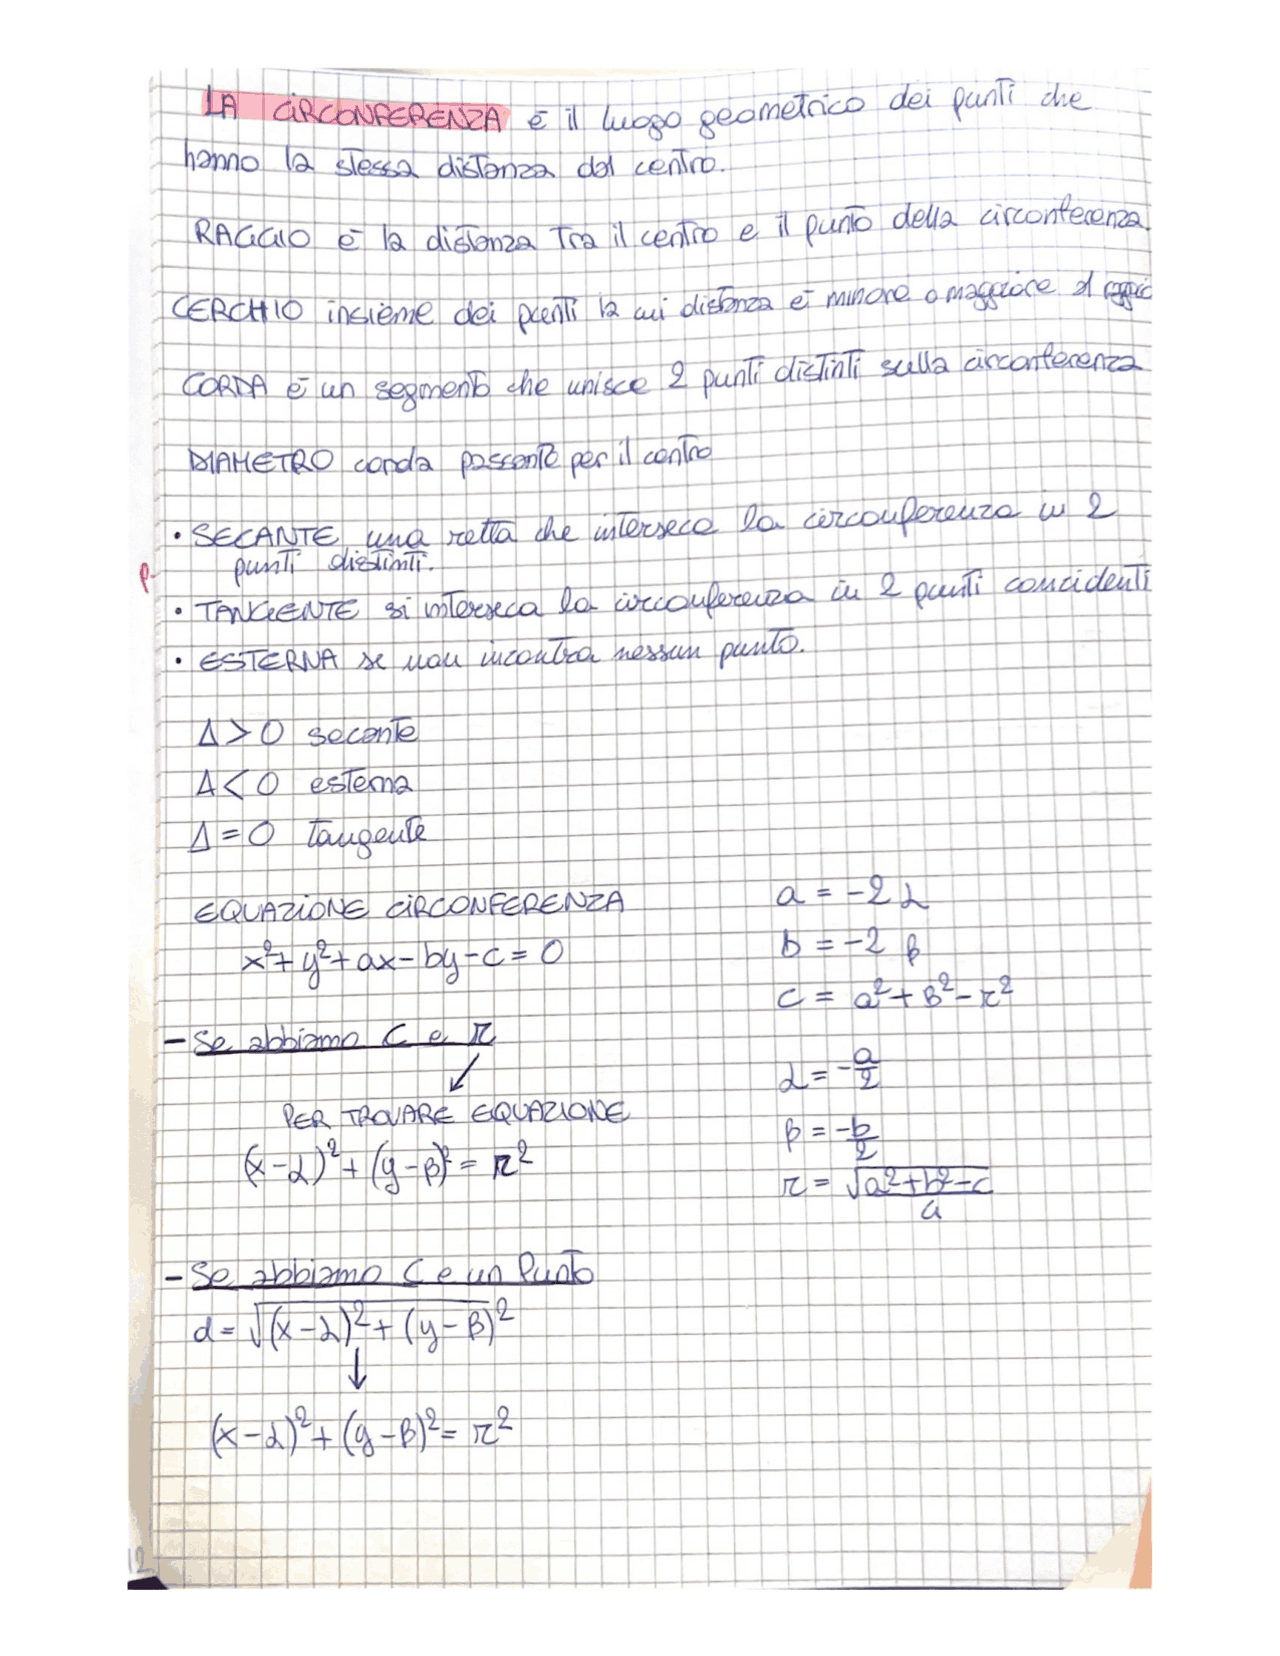 LA CIRCONFERENZA è il luogo geometrico dei punti che
hanno la stessa distanza dal centro.
RAGGIO è la distanza tra il centro e il punto della circonferenza.
CERCHIO insieme dei punti la cui distanza è minore o maggiore al raggio
CORDA è un segmento che unisce 2 punti distinti sulla circonferenza
DIAMETRO corda passante per il centro
• SECANTE una retta che interseca la circonferenza in 2
punti distinti.
p.
• TANGENTE si interseca la circonferenza in 2 punti concidenti
• ESTERNA se non incontra nessun punto.
Δ>0 secante
Δ<0 esterna
Δ=0 tangente
EQUAZIONE CIRCONFERENZA
x²+y²+ax-by-c=0
a = -2α
b = -2β
c = a²+β²-r²
- Se abbiamo C e r
↙
PER TROVARE EQUAZIONE
(x-α)²+(y-β)²=r²
α=-a/2
β=-b/2
r = √a²+b²-c/a
- Se abbiamo C e un Punto
d=√(x-α)²+(y-β)²
↓
(x-α)²+(y-β)²=r²
12